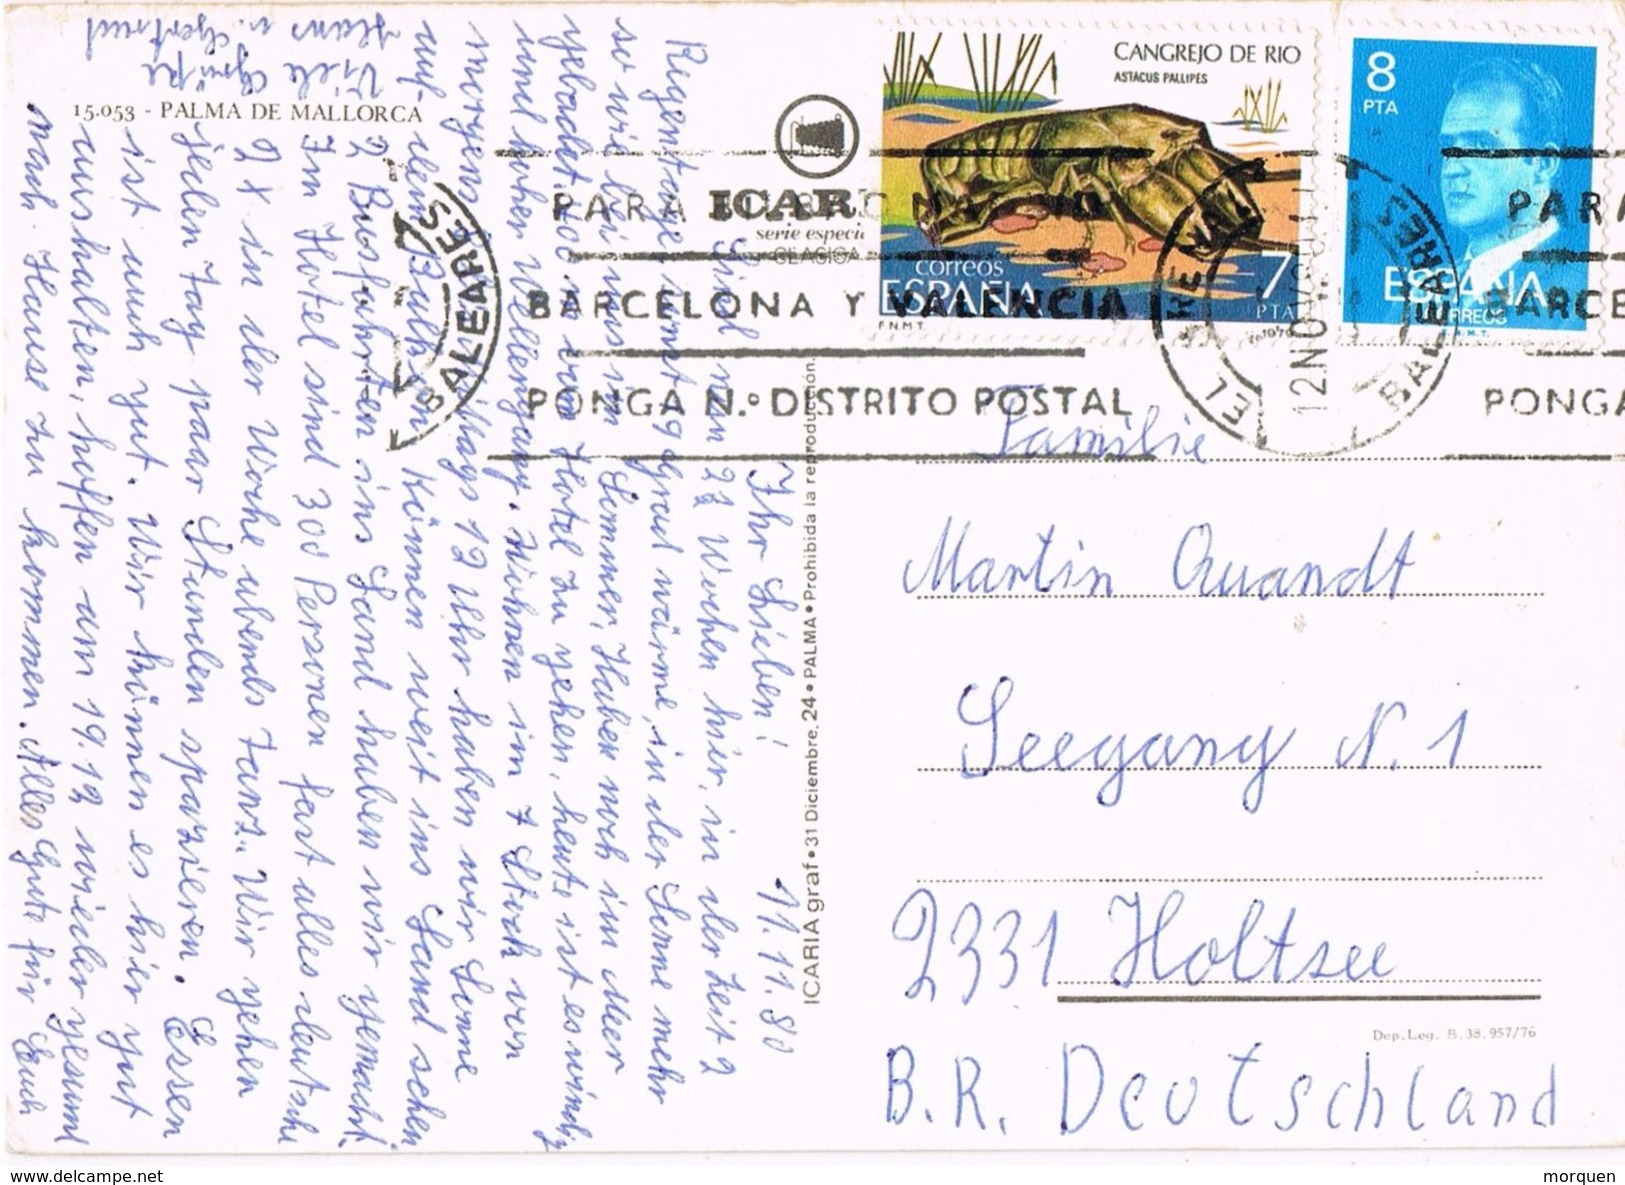 15.053 - PALMA DE MALLORCA
ICARIA
serie especial
CLASICA
CANGREJO DE RIO
ASTACUS PALLIPES
correos
ESPAÑA
7
PTA
F.N.M.T.
1979
8
PTA
ESPAÑA
CORREOS
F.N.M.T.
PARA BARCELONA
BARCELONA Y VALENCIA
PONGA N.º DISTRITO POSTAL
EL ARENAL
12 NOV 80
BALEARES
BALEARES
PARA
BARCE
PONGA
ICARIA graf • 31 Diciembre, 24 • PALMA • Prohibida la reproducción.
Ihr Lieben! 11.11.80
Sind nun 2½ Wochen hier, in der Zeit 2
Regentage sonst 19 Grad wärme, in der Sonne mehr
so wie bei uns im Sommer, Haben noch im Meer
gebadet 100 m vom Hotel zu gehen, heute ist es windig
und hoher Wellengang. Wohnen im 7 Stock von
morgens bis Mitags 12 Uhr haben wir Sonne
auf dem Balkon. Können weit ins Land sehen
2 Busfahrten ins Land haben wir gemacht.
Im Hotel sind 300 Personen fast alles deutsche
2 x in der Woche abends Tanz. Wir gehen
jeden Tag paar Stunden spazieren. Essen
ist auch gut. Wir können es hier gut
aushalten, hoffen am 19.12 wieder gesund
nach Hause zu kommen. Alles Gute für Euch
Viele Grüße
Hans u. Gertrud
Familie
Martin Quandt
Seegang N. 1
2331 Holtsee
B.R. Deutschland
Dep. Leg. B. 38.957/76
morquen